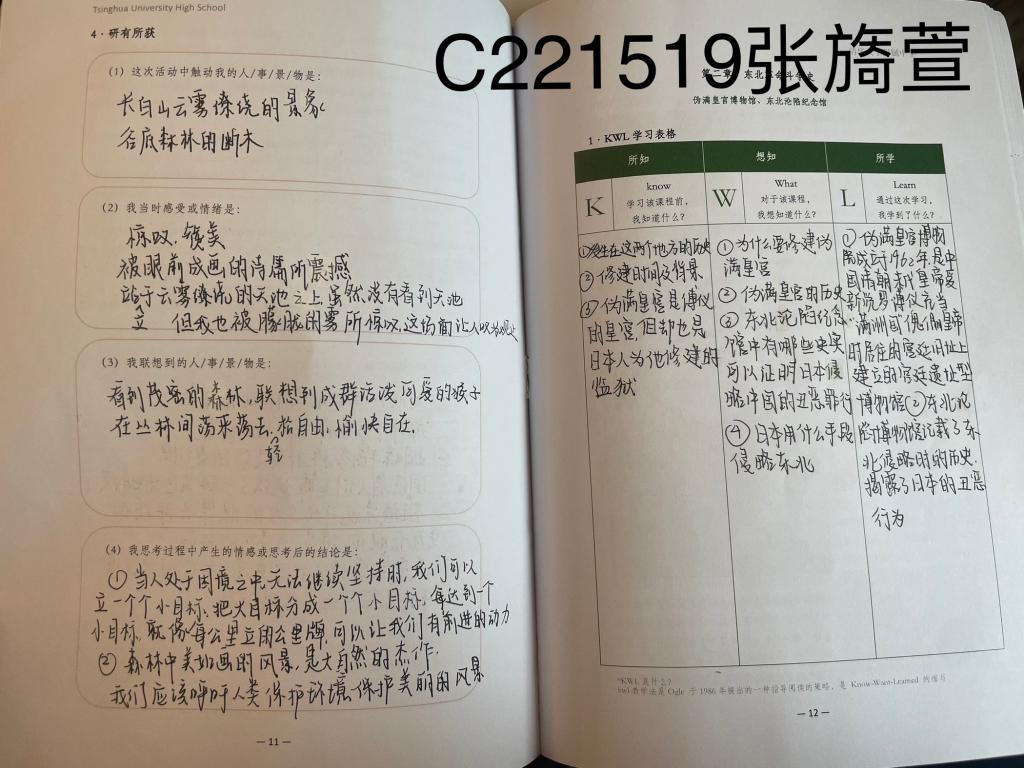 Tsinghua University High School
4·研有所获
(1) 这次活动中触动我的人/事/景/物是:
长白山云雾缭绕的景象
谷底森林的断木
(2) 我当时感受或情绪是:
惊叹、
被眼前成画的诗情所震撼
站于云雾缭绕的天池之上虽然没有看到天池
立 但我也被朦胧的雾所惊叹,这场面让人叹为观止
(3) 我联想到的人/事/景/物是:
看到茂密的森林,联想到成群活泼可爱的猴子
在丛林间荡来荡去,拾自由,愉快自在.
轻
(4) 我思考过程中产生的情感或思考后的结论是:
① 当人处于困境之中无法继续坚持时,我们可以
立一个个小目标,把大目标分成一个个小目标,每达到一个
小目标,就像每公里立的公里牌,可以让我们有前进的动力
② 森林中美如画的风景,是大自然的杰作.
我们应该呼吁人类保护环境保护美丽的风景
— 11 —
C221519张旖萱
第二章 东北革命斗争史
伪满皇宫博物馆、东北沦陷纪念馆
1·KWL 学习表格
所知 想知 所学
K
know
学习该课程前,
我知道什么?
W
What
对于该课程,
我想知道什么?
L
Learn
通过这次学习,
我学到了什么?
①发生在这两个地方的历史
②修建时间及背景
③伪满皇宫是溥仪
的皇宫,但却也是
日本人为他修建的
监狱
①为什么要修建伪
满皇宫
②伪满皇宫的历史
③东北沦陷纪念
馆中有哪些史实
可以证明日本侵
略中国的丑恶罪行
④日本用什么手段
侵略东北
①伪满皇宫博物
院成立于1962年,是中
国清朝末代皇帝爱
新觉罗溥仪充当
满洲国傀儡皇帝
时居住的宫廷旧址上
建立的宫廷遗址型
博物馆②东北沦
陷博物馆记载了东
北侵略时的历史.
揭露了日本的丑恶
行为
*KWL 是什么?
kwl 教学法是 Ogle 于 1986 年提出的一种指导阅读的策略, 是 Know-Want-Learned 的缩写
— 12 —